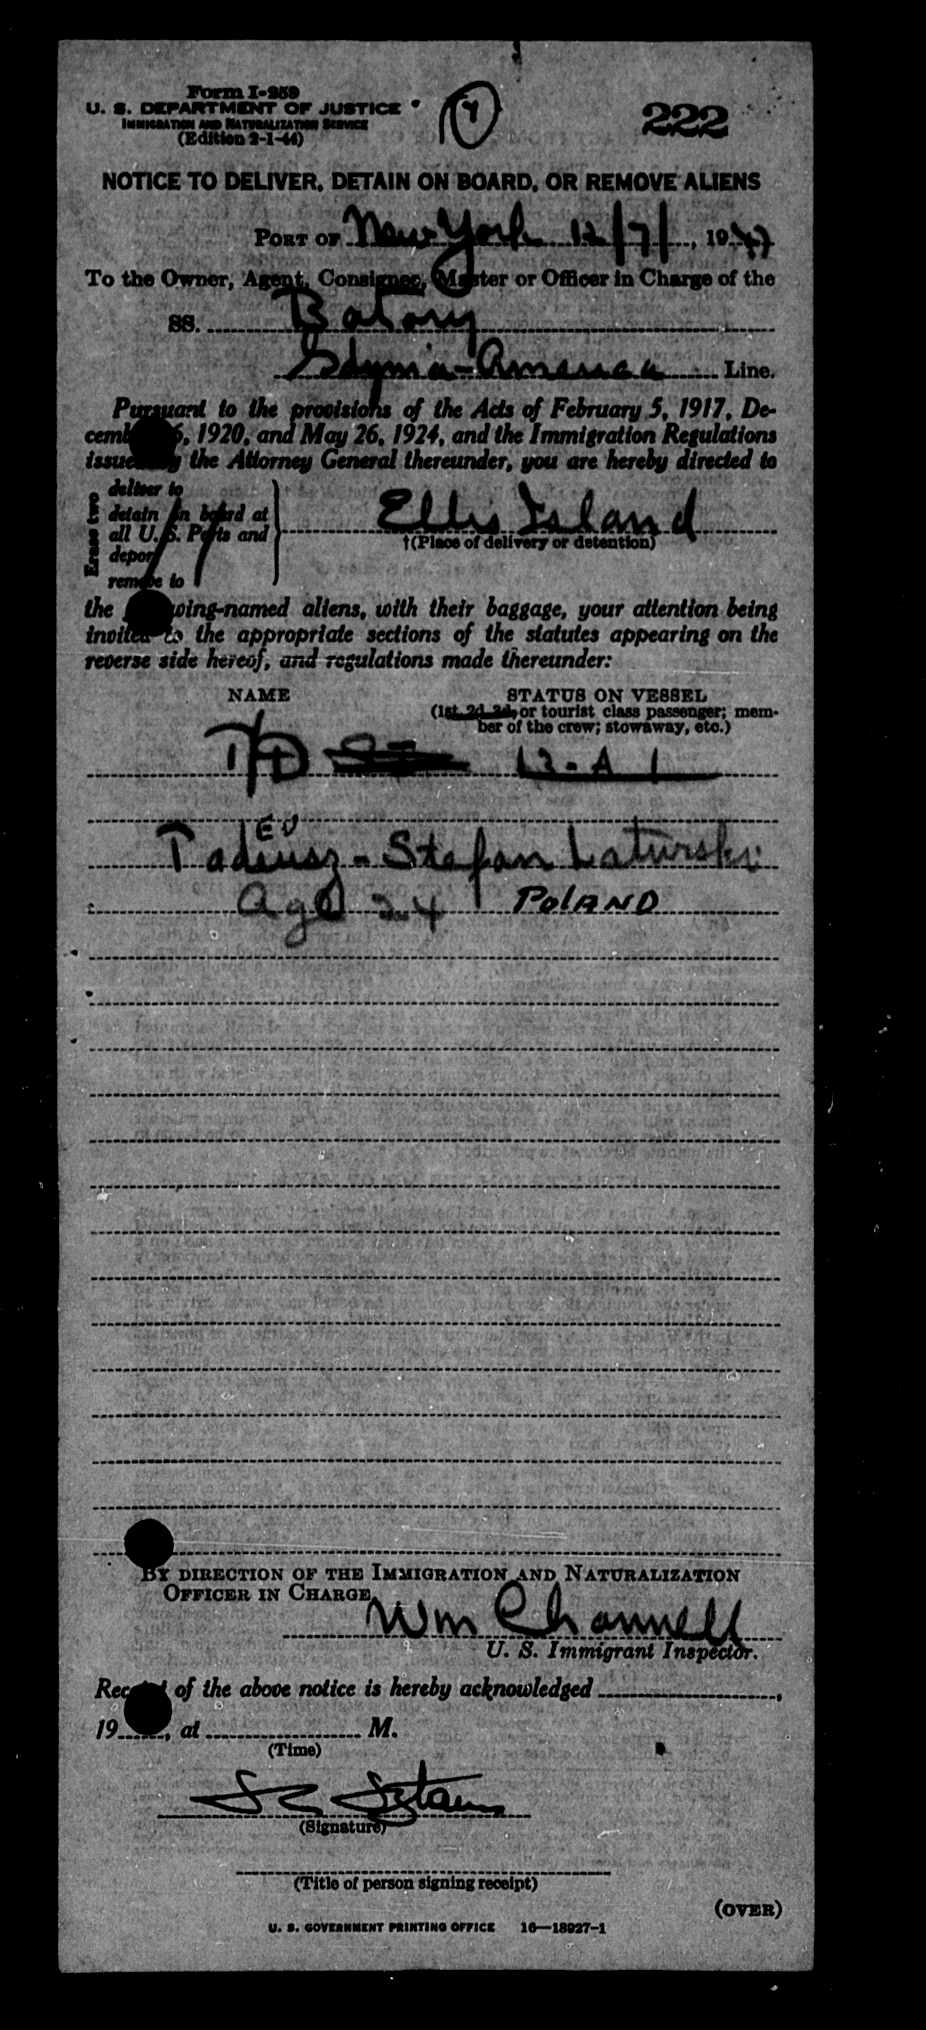 Form I-259
U. S. DEPARTMENT OF JUSTICE
IMMIGRATION AND NATURALIZATION SERVICE
(Edition 2-1-44)
222
NOTICE TO DELIVER, DETAIN ON BOARD, OR REMOVE ALIENS
PORT OF New York 12/7/, 1947
To the Owner, Agent, Consignee, Master or Officer in Charge of the
SS. Batory
Gdynia-America Line.
Pursuant to the provisions of the Acts of February 5, 1917, De-
cember 26, 1920, and May 26, 1924, and the Immigration Regulations
issued by the Attorney General thereunder, you are hereby directed to
Erase two
deliver to
detain on board at
all U. S. Ports and
deport
remove to
Ellis Island
†(Place of delivery or detention)
the following-named aliens, with their baggage, your attention being
invited to the appropriate sections of the statutes appearing on the
reverse side hereof, and regulations made thereunder:
NAME STATUS ON VESSEL
(1st, 2d, 3d, or tourist class passenger; mem-
ber of the crew; stowaway, etc.)
T/D 13-A 1
EU
Tadeusz-Stefan Laturski
Age 24 POLAND
BY DIRECTION OF THE IMMIGRATION AND NATURALIZATION
OFFICER IN CHARGE,
Wm Channell
U. S. Immigrant Inspector.
Receipt of the above notice is hereby acknowledged ,
19 , at M.
(Time)
(Signature)
(Title of person signing receipt)
(OVER)
U. S. GOVERNMENT PRINTING OFFICE 16—18927-1